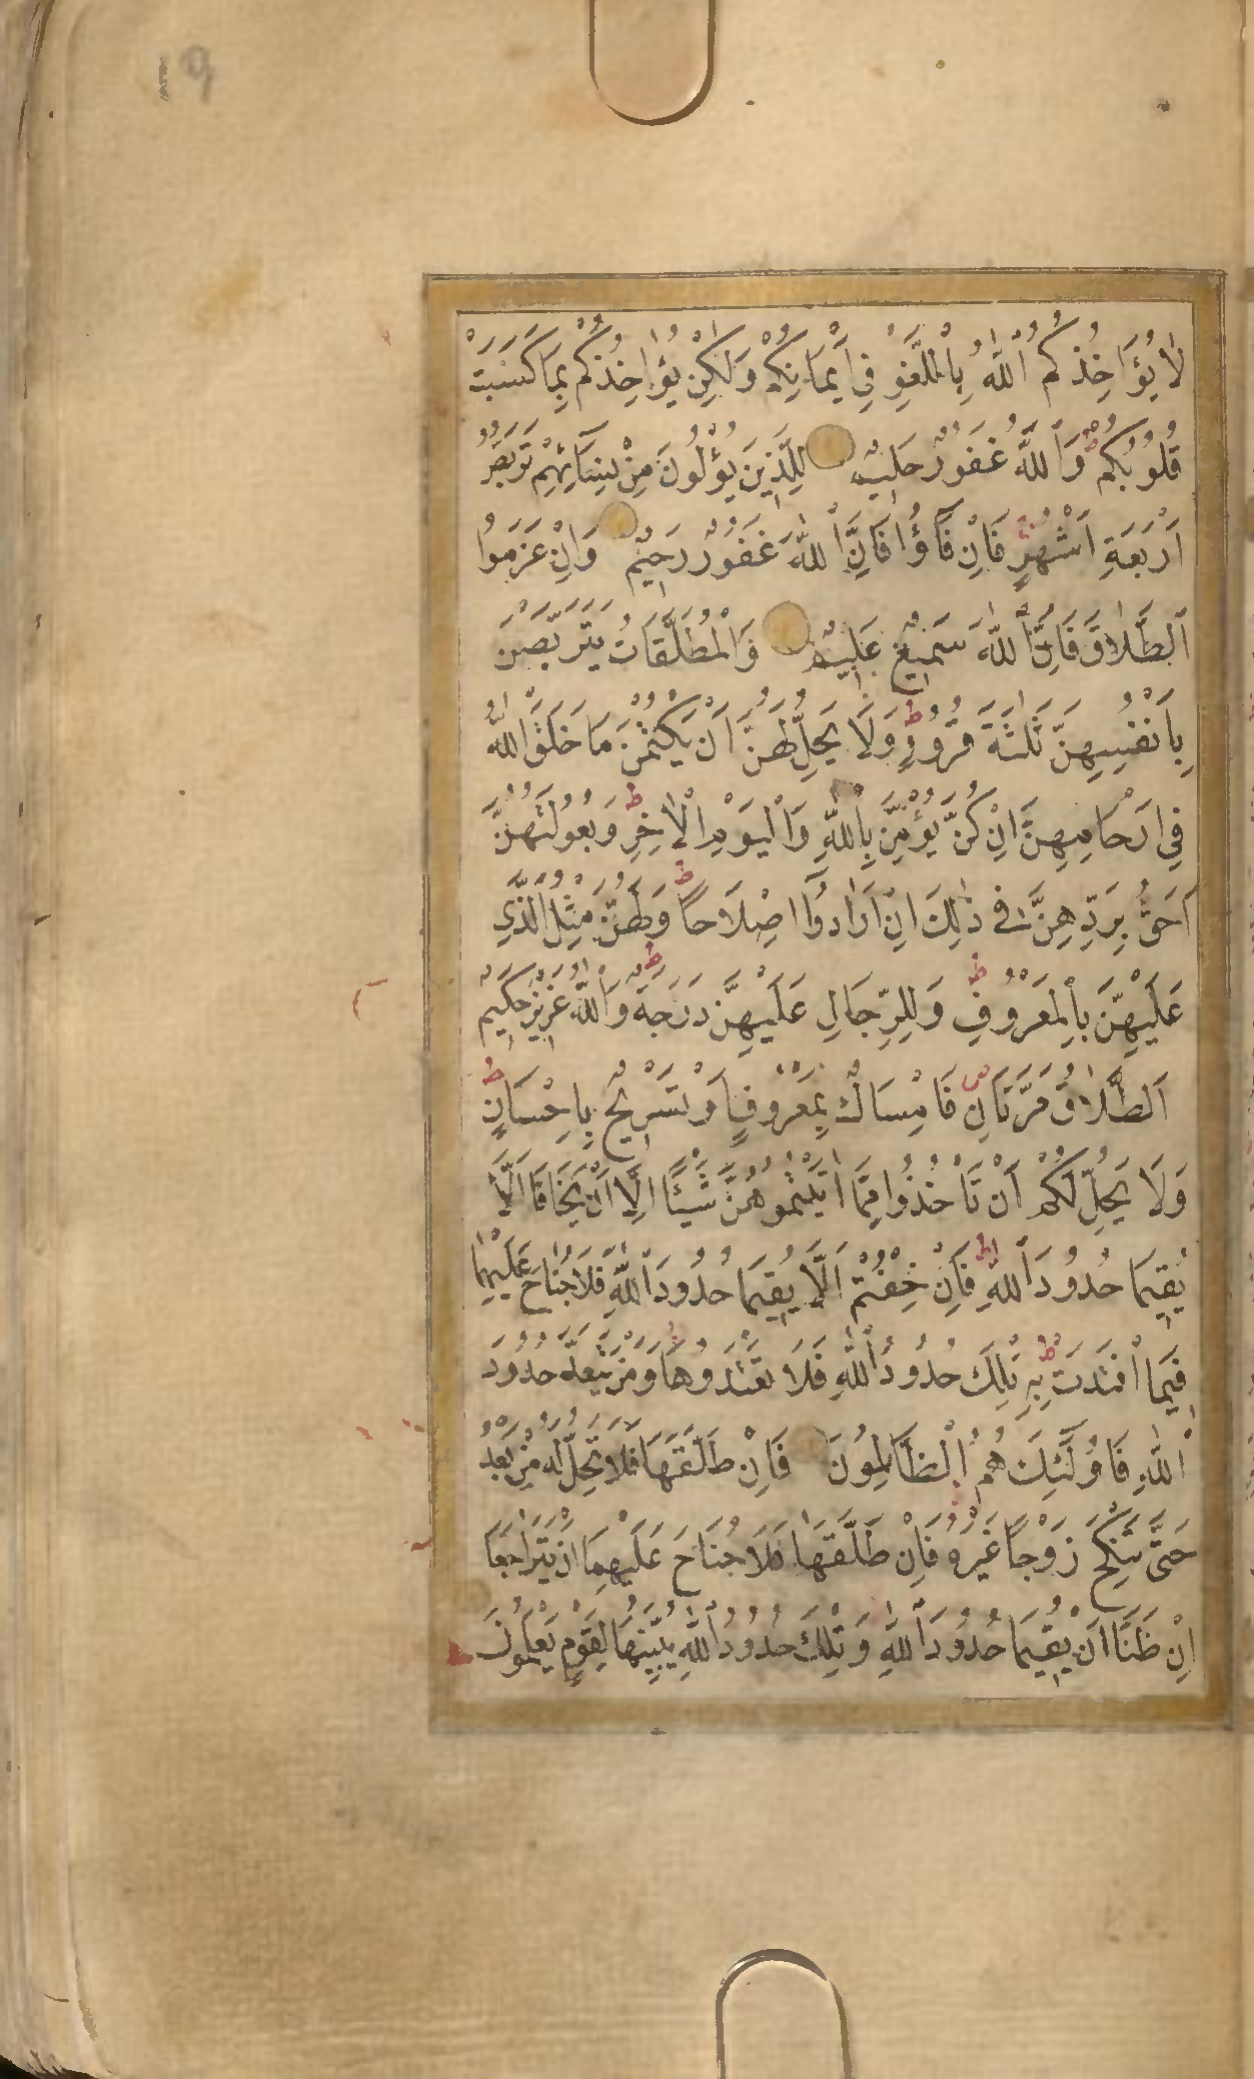 19
لَا يُؤَاخِذُكُمُ اللّٰهُ بِاللَّغْوِ فِي اَيْمَانِكُمْ وَلٰكِنْ يُؤَاخِذُكُمْ بِمَا كَسَبَتْ
قُلُوبُكُمْ ط وَاللّٰهُ غَفُورٌ حَلِيمٌ لِلَّذِينَ يُؤْلُونَ مِنْ نِسَائِهِمْ تَرَبُّصُ
اَرْبَعَةِ اَشْهُرٍ فَاِنْ فَآؤُا فَاِنَّ اللّٰهَ غَفُورٌ رَحِيمٌ وَاِنْ عَزَمُوا
الطَّلَاقَ فَاِنَّ اللّٰهَ سَمِيعٌ عَلِيمٌ وَالْمُطَلَّقَاتُ يَتَرَبَّصْنَ
بِاَنْفُسِهِنَّ ثَلٰثَةَ قُرُوءٍ ط وَلَا يَحِلُّ لَهُنَّ اَنْ يَكْتُمْنَ مَا خَلَقَ اللّٰهُ
فِي اَرْحَامِهِنَّ اِنْ كُنَّ يُؤْمِنَّ بِاللّٰهِ وَالْيَوْمِ الْاٰخِرِ ط وَبُعُولَتُهُنَّ
اَحَقُّ بِرَدِّهِنَّ فِي ذٰلِكَ اِنْ اَرَادُوا اِصْلَاحًا ط وَلَهُنَّ مِثْلُ الَّذِي
عَلَيْهِنَّ بِالْمَعْرُوفِ ط وَلِلرِّجَالِ عَلَيْهِنَّ دَرَجَةٌ ط وَاللّٰهُ عَزِيزٌ حَكِيمٌ
اَلطَّلَاقُ مَرَّتَانِ ص فَاِمْسَاكٌ بِمَعْرُوفٍ اَوْ تَسْرِيحٌ بِاِحْسَانٍ ط
وَلَا يَحِلُّ لَكُمْ اَنْ تَأْخُذُوا مِمَّا اٰتَيْتُمُوهُنَّ شَيْئًا اِلَّا اَنْ يَخَافَا اَلَّا
يُقِيمَا حُدُودَ اللّٰهِ ط فَاِنْ خِفْتُمْ اَلَّا يُقِيمَا حُدُودَ اللّٰهِ فَلَا جُنَاحَ عَلَيْهِمَا
فِيمَا افْتَدَتْ بِهِ ط تِلْكَ حُدُودُ اللّٰهِ فَلَا تَعْتَدُوهَا وَمَنْ يَتَعَدَّ حُدُودَ
اللّٰهِ فَاُولٰئِكَ هُمُ الظَّالِمُونَ فَاِنْ طَلَّقَهَا فَلَا تَحِلُّ لَهُ مِنْ بَعْدُ
حَتّٰى تَنْكِحَ زَوْجًا غَيْرَهُ فَاِنْ طَلَّقَهَا فَلَا جُنَاحَ عَلَيْهِمَا اَنْ يَتَرَاجَعَا
اِنْ ظَنَّا اَنْ يُقِيمَا حُدُودَ اللّٰهِ وَتِلْكَ حُدُودُ اللّٰهِ يُبَيِّنُهَا لِقَوْمٍ يَعْلَمُونَ